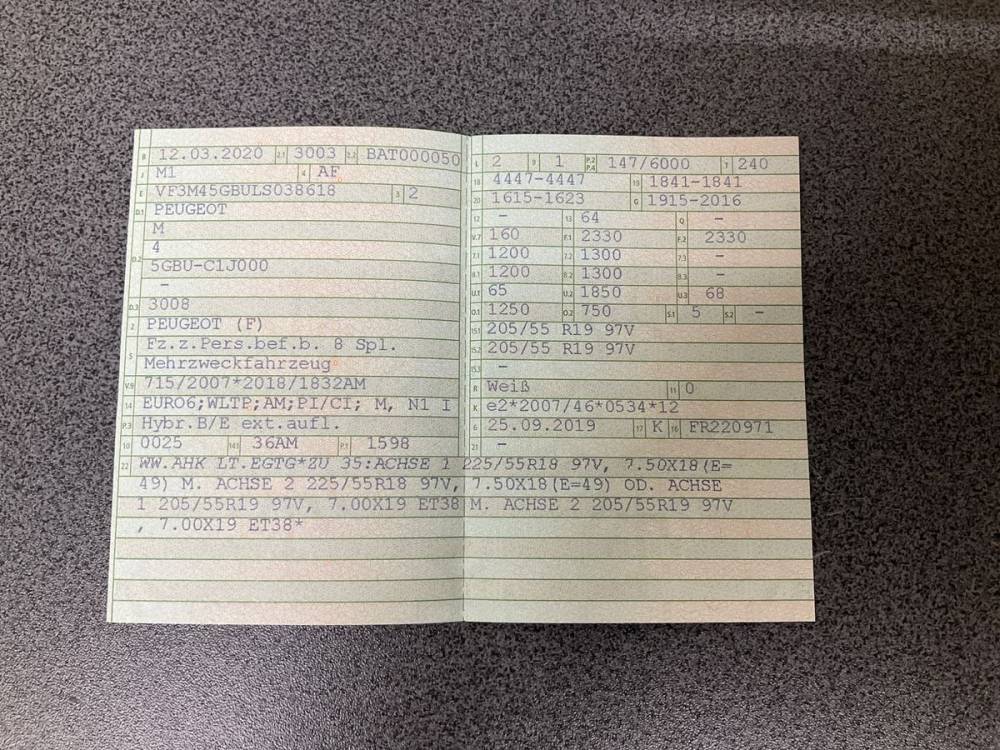 B 12.03.2020 2.1 3003 2.2 BAT000050
J M1 4 AF
E VF3M45GBULS038618 3 2
D.1 PEUGEOT
M
D.2 4
5GBU-C1J000
–
D.3 3008
2 PEUGEOT (F)
5 Fz.z.Pers.bef.b. 8 Spl.
Mehrzweckfahrzeug
V.9 715/2007*2018/1832AM
14 EURO6;WLTP;AM;PI/CI; M, N1 I
P.3 Hybr.B/E ext.aufl.
10 0025 14.1 36AM P.1 1598
L 2 9 1 P.2 P.4 147/6000 T 240
18 4447-4447 19 1841-1841
20 1615-1623 G 1915-2016
12 – 13 64 Q –
V.7 160 F.1 2330 F.2 2330
7.1 1200 7.2 1300 7.3 –
8.1 1200 8.2 1300 8.3 –
U.1 65 U.2 1850 U.3 68
O.1 1250 O.2 750 S.1 5 S.2 –
15.1 205/55 R19 97V
15.2 205/55 R19 97V
15.3 –
R Weiß 11 0
K e2*2007/46*0534*12
6 25.09.2019 17 K 16 FR220971
21 –
22 WW.AHK LT.EGTG*ZU 35:ACHSE 1 225/55R18 97V, 7.50X18(E=
49) M. ACHSE 2 225/55R18 97V, 7.50X18(E=49) OD. ACHSE
1 205/55R19 97V, 7.00X19 ET38 M. ACHSE 2 205/55R19 97V
, 7.00X19 ET38*